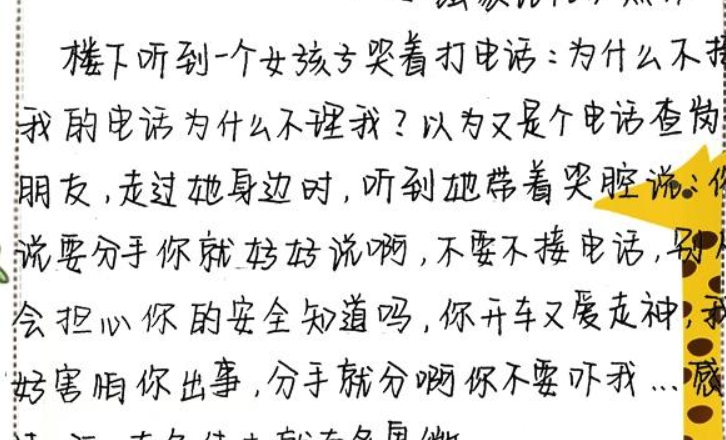 楼下听到一个女孩子哭着打电话：为什么不接
我的电话为什么不理我？以为又是个电话查岗
朋友，走过她身边时，听到她带着哭腔说：你
说要分手你就好好说啊，不要不接电话，别人
会担心你的安全知道吗，你开车又爱走神，我
好害怕你出事，分手就分啊你不要吓我…感